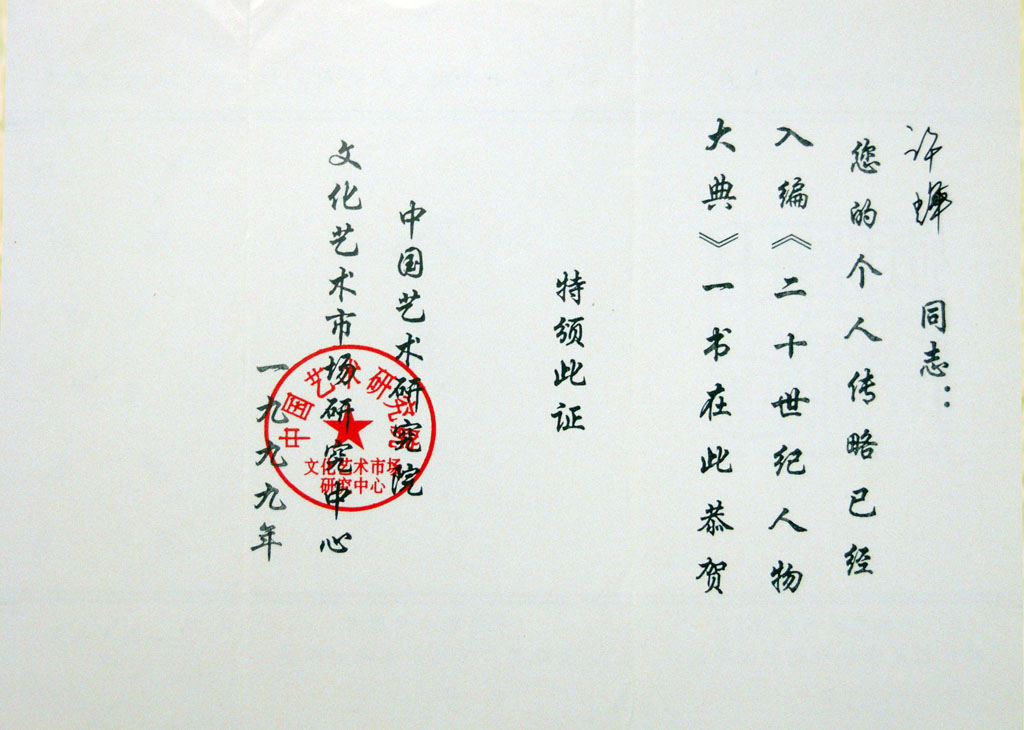 许晖 同志：
您的个人传略已经
入编《二十世纪人物
大典》一书在此恭贺
特颁此证
中国艺术研究院
文化艺术市场研究中心
一九九九年
中国艺术研究院
文化艺术市场
研究中心